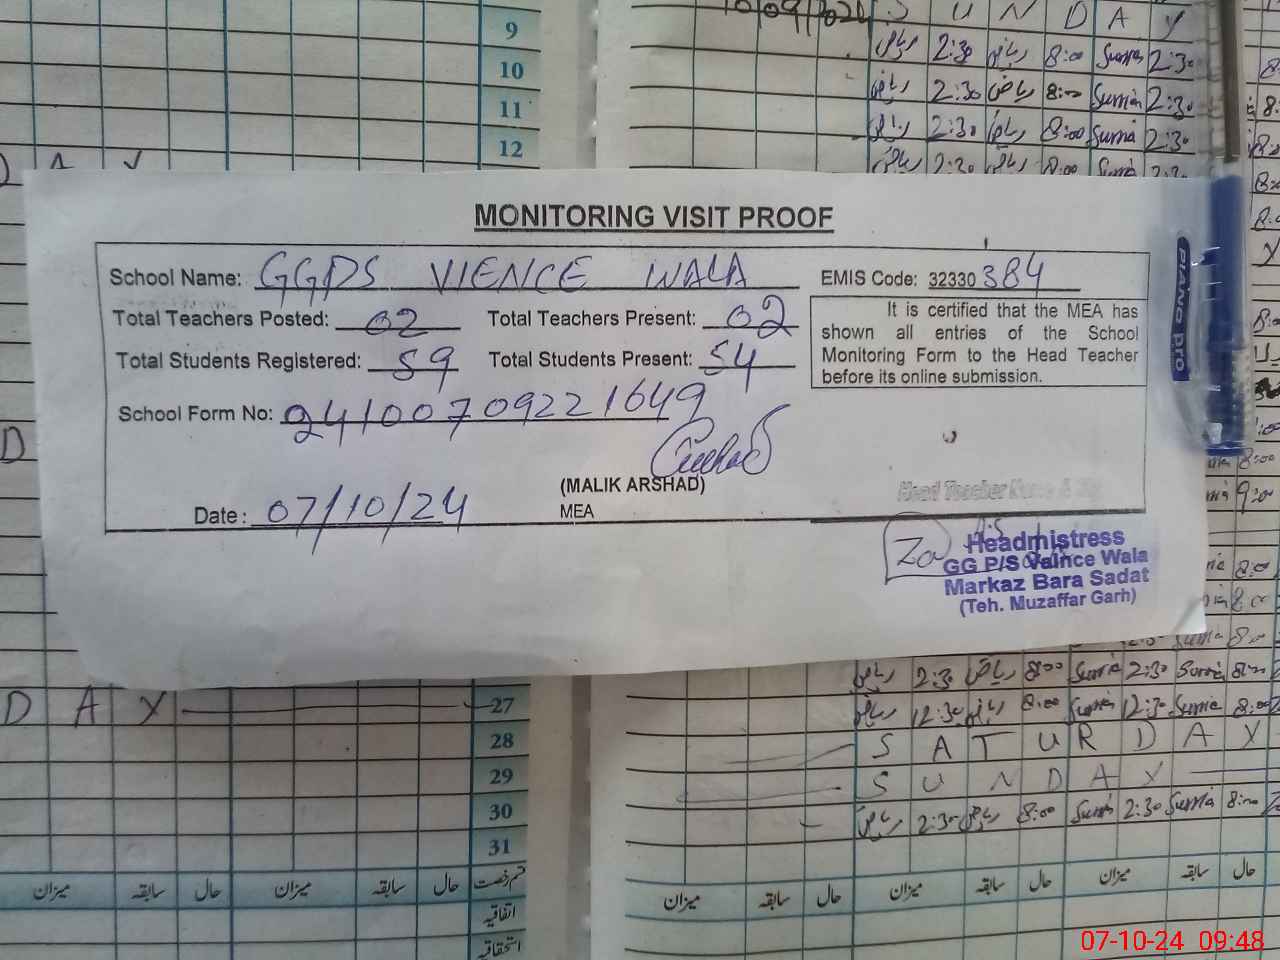 10/09/2024 S U N D A Y
ریاض 2:30 ریاض 8:00 Sumia 2:30
ریاض 2:30 ریاض 8:00 Sumia 2:30
ریاض 2:30 ریاض 8:00 Sumia 2:30
9
10
11
12
D A Y
MONITORING VISIT PROOF
School Name: GGPS VIENCE WALA
EMIS Code: 32330384
Total Teachers Posted: 02 Total Teachers Present: 02
Total Students Registered: 59 Total Students Present: 54
School Form No: 24100709221649
It is certified that the MEA has
shown all entries of the School
Monitoring Form to the Head Teacher
before its online submission.
(MALIK ARSHAD)
MEA
Date: 07/10/24
Headmistress
GG P/S Vaince Wala
Markaz Bara Sadat
(Teh. Muzaffar Garh)
PIANO Pro
D
D A Y 27
28
29
30
31
ریاض 2:30 ریاض 8:00 Sumia 2:30 Sumia 8:00
ریاض 12:30 ریاض 8:00 Sumia 12:30 Sumia 8:00
S A T U R D A Y
S U N D A Y
ریاض 2:30 ریاض 8:00 Sumia 2:30 Sumia 8:00
میزان سابقہ حال میزان سابقہ حال قسم رخصت
اتفاقیہ
استحقاقیہ
میزان سابقہ حال میزان سابقہ حال میزان سابقہ حال
07-10-24 09:48